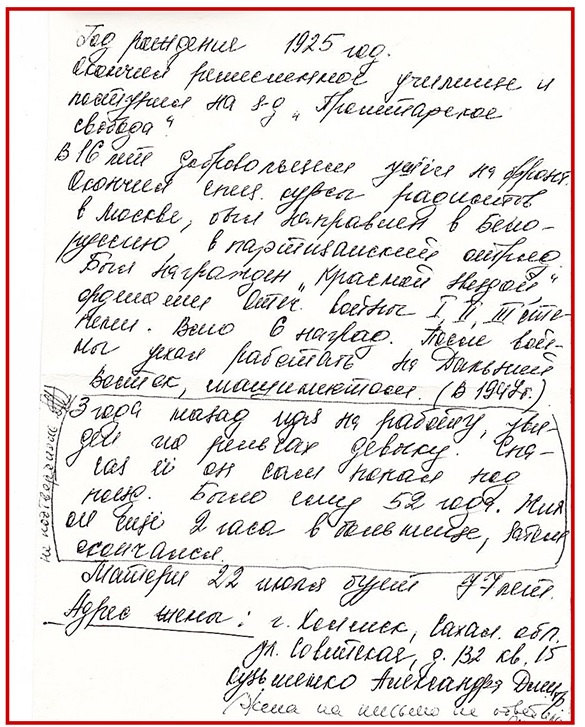 Год рождения 1925 год.
Окончил ремесленное училище и
поступил на з-д „Пролетарская
свобода“
В 16 лет добровольцем ушёл на фронт.
Окончил спец. курсы радистов
в Москве, был направлен в Бело-
руссию в партизанский отряд.
Был награжден „Красной звездой“
орденами Отеч. войны I, II, III сте-
пени. Всего 6 наград. После вой-
ны уехал работать на Дальний
Восток, машинистом. (В 1947г.)
3 года назад идя на работу, уви-
дел на рельсах девочку. Спа-
сая её он сам попал под
поезд. Было ему 52 года. Жил
он ещё 2 часа в больнице, затем
скончался.
не подтвердилось
Матери 22 июля будет 77 лет.
Адрес жены: г. Холмск, Сахал. обл.
ул. Советская, д. 132 кв. 15
Кузьменко Александра Дмитр
(Жена на письмо не ответила